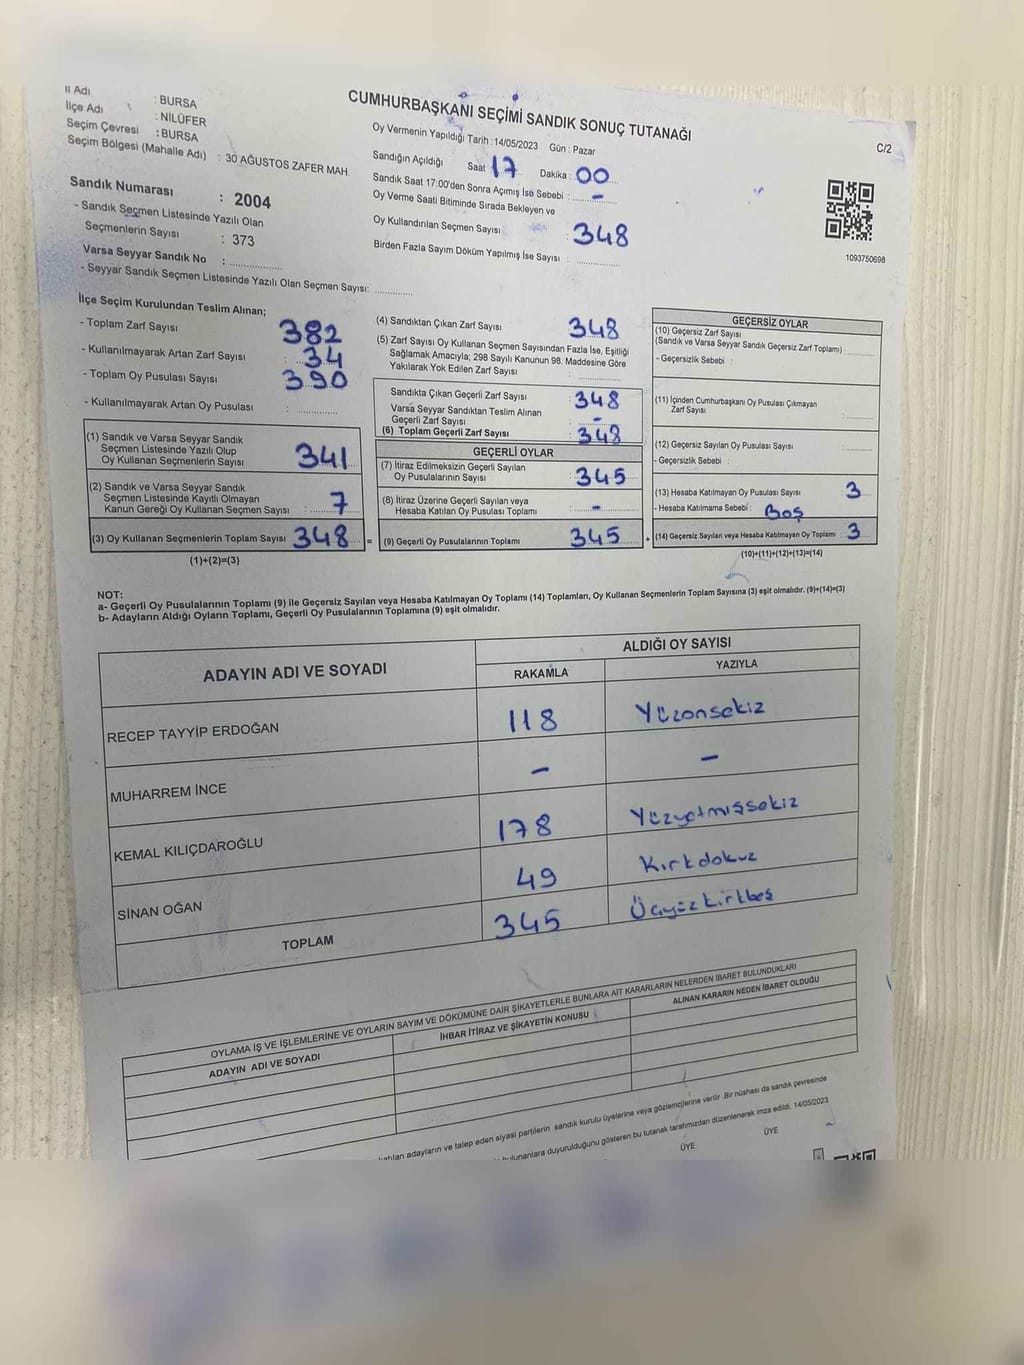 CUMHURBAŞKANI SEÇİMİ SANDIK SONUÇ TUTANAĞI
C/2
İl Adı : BURSA
İlçe Adı : NİLÜFER
Seçim Çevresi : BURSA
Seçim Bölgesi (Mahalle Adı) : 30 AĞUSTOS ZAFER MAH.
Sandık Numarası : 2004
- Sandık Seçmen Listesinde Yazılı Olan
Seçmenlerin Sayısı : 373
Varsa Seyyar Sandık No :
- Seyyar Sandık Seçmen Listesinde Yazılı Olan Seçmen Sayısı:
Oy Vermenin Yapıldığı Tarih : 14/05/2023 Gün : Pazar
Sandığın Açıldığı Saat 17 Dakika : 00
Sandık Saat 17:00'den Sonra Açımış İse Sebebi : -
Oy Verme Saati Bitiminde Sırada Bekleyen ve
Oy Kullandırılan Seçmen Sayısı : 348
Birden Fazla Sayım Döküm Yapılmış İse Sayısı :
1093750698
İlçe Seçim Kurulundan Teslim Alınan;
- Toplam Zarf Sayısı 382
- Kullanılmayarak Artan Zarf Sayısı : 34
- Toplam Oy Pusulası Sayısı : 390
- Kullanılmayarak Artan Oy Pusulası :
(1) Sandık ve Varsa Seyyar Sandık
Seçmen Listesinde Yazılı Olup
Oy Kullanan Seçmenlerin Sayısı 341
(2) Sandık ve Varsa Seyyar Sandık
Seçmen Listesinde Kayıtlı Olmayan
Kanun Gereği Oy Kullanan Seçmen Sayısı : 7
(3) Oy Kullanan Seçmenlerin Toplam Sayısı 348 =
(1)+(2)=(3)
(4) Sandıktan Çıkan Zarf Sayısı 348
(5) Zarf Sayısı Oy Kullanan Seçmen Sayısından Fazla İse, Eşitliği
Sağlamak Amacıyla; 298 Sayılı Kanunun 98. Maddesine Göre
Yakılarak Yok Edilen Zarf Sayısı :
Sandıkta Çıkan Geçerli Zarf Sayısı : 348
Varsa Seyyar Sandıktan Teslim Alınan
Geçerli Zarf Sayısı : -
(6) Toplam Geçerli Zarf Sayısı : 348
GEÇERLİ OYLAR
(7) İtiraz Edilmeksizin Geçerli Sayılan
Oy Pusulalarının Sayısı : 345
(8) İtiraz Üzerine Geçerli Sayılan veya
Hesaba Katılan Oy Pusulası Toplamı : -
(9) Geçerli Oy Pusulalarının Toplamı 345 +
GEÇERSİZ OYLAR
(10) Geçersiz Zarf Sayısı
(Sandık ve Varsa Seyyar Sandık Geçersiz Zarf Toplamı) :
- Geçersizlik Sebebi :
(11) İçinden Cumhurbaşkanı Oy Pusulası Çıkmayan
Zarf Sayısı :
(12) Geçersiz Sayılan Oy Pusulası Sayısı :
- Geçersizlik Sebebi :
(13) Hesaba Katılmayan Oy Pusulası Sayısı : 3
- Hesaba Katılmama Sebebi : Boş
(14) Geçersiz Sayılan veya Hesaba Katılmayan Oy Toplamı : 3
(10)+(11)+(12)+(13)=(14)
NOT:
a- Geçerli Oy Pusulalarının Toplamı (9) ile Geçersiz Sayılan veya Hesaba Katılmayan Oy Toplamı (14) Toplamları, Oy Kullanan Seçmenlerin Toplam Sayısına (3) eşit olmalıdır. (9)+(14)=(3)
b- Adayların Aldığı Oyların Toplamı, Geçerli Oy Pusulalarının Toplamına (9) eşit olmalıdır.
ADAYIN ADI VE SOYADI ALDIĞI OY SAYISI
RAKAMLA YAZIYLA
RECEP TAYYİP ERDOĞAN 118 Yüzonsekiz
MUHARREM İNCE - -
KEMAL KILIÇDAROĞLU 178 Yüzyetmişsekiz
SİNAN OĞAN 49 Kırkdokuz
TOPLAM 345 Üçyüzkırkbeş
OYLAMA İŞ VE İŞLEMLERİNE VE OYLARIN SAYIM VE DÖKÜMÜNE DAİR ŞİKAYETLERLE BUNLARA AİT KARARLARIN NELERDEN İBARET BULUNDUKLARI
ADAYIN ADI VE SOYADI İHBAR İTİRAZ VE ŞİKAYETİN KONUSU ALINAN KARARIN NEDEN İBARET OLDUĞU
adayların ve talep eden siyasi partilerin sandık kurulu üyelerine veya gözlemcilerine verilir. Bir nüshası da sandık çevresinde
bulunanlara duyurulduğunu gösteren bu tutanak tarafımızdan düzenlenerek imza edildi. 14/05/2023
ÜYE ÜYE